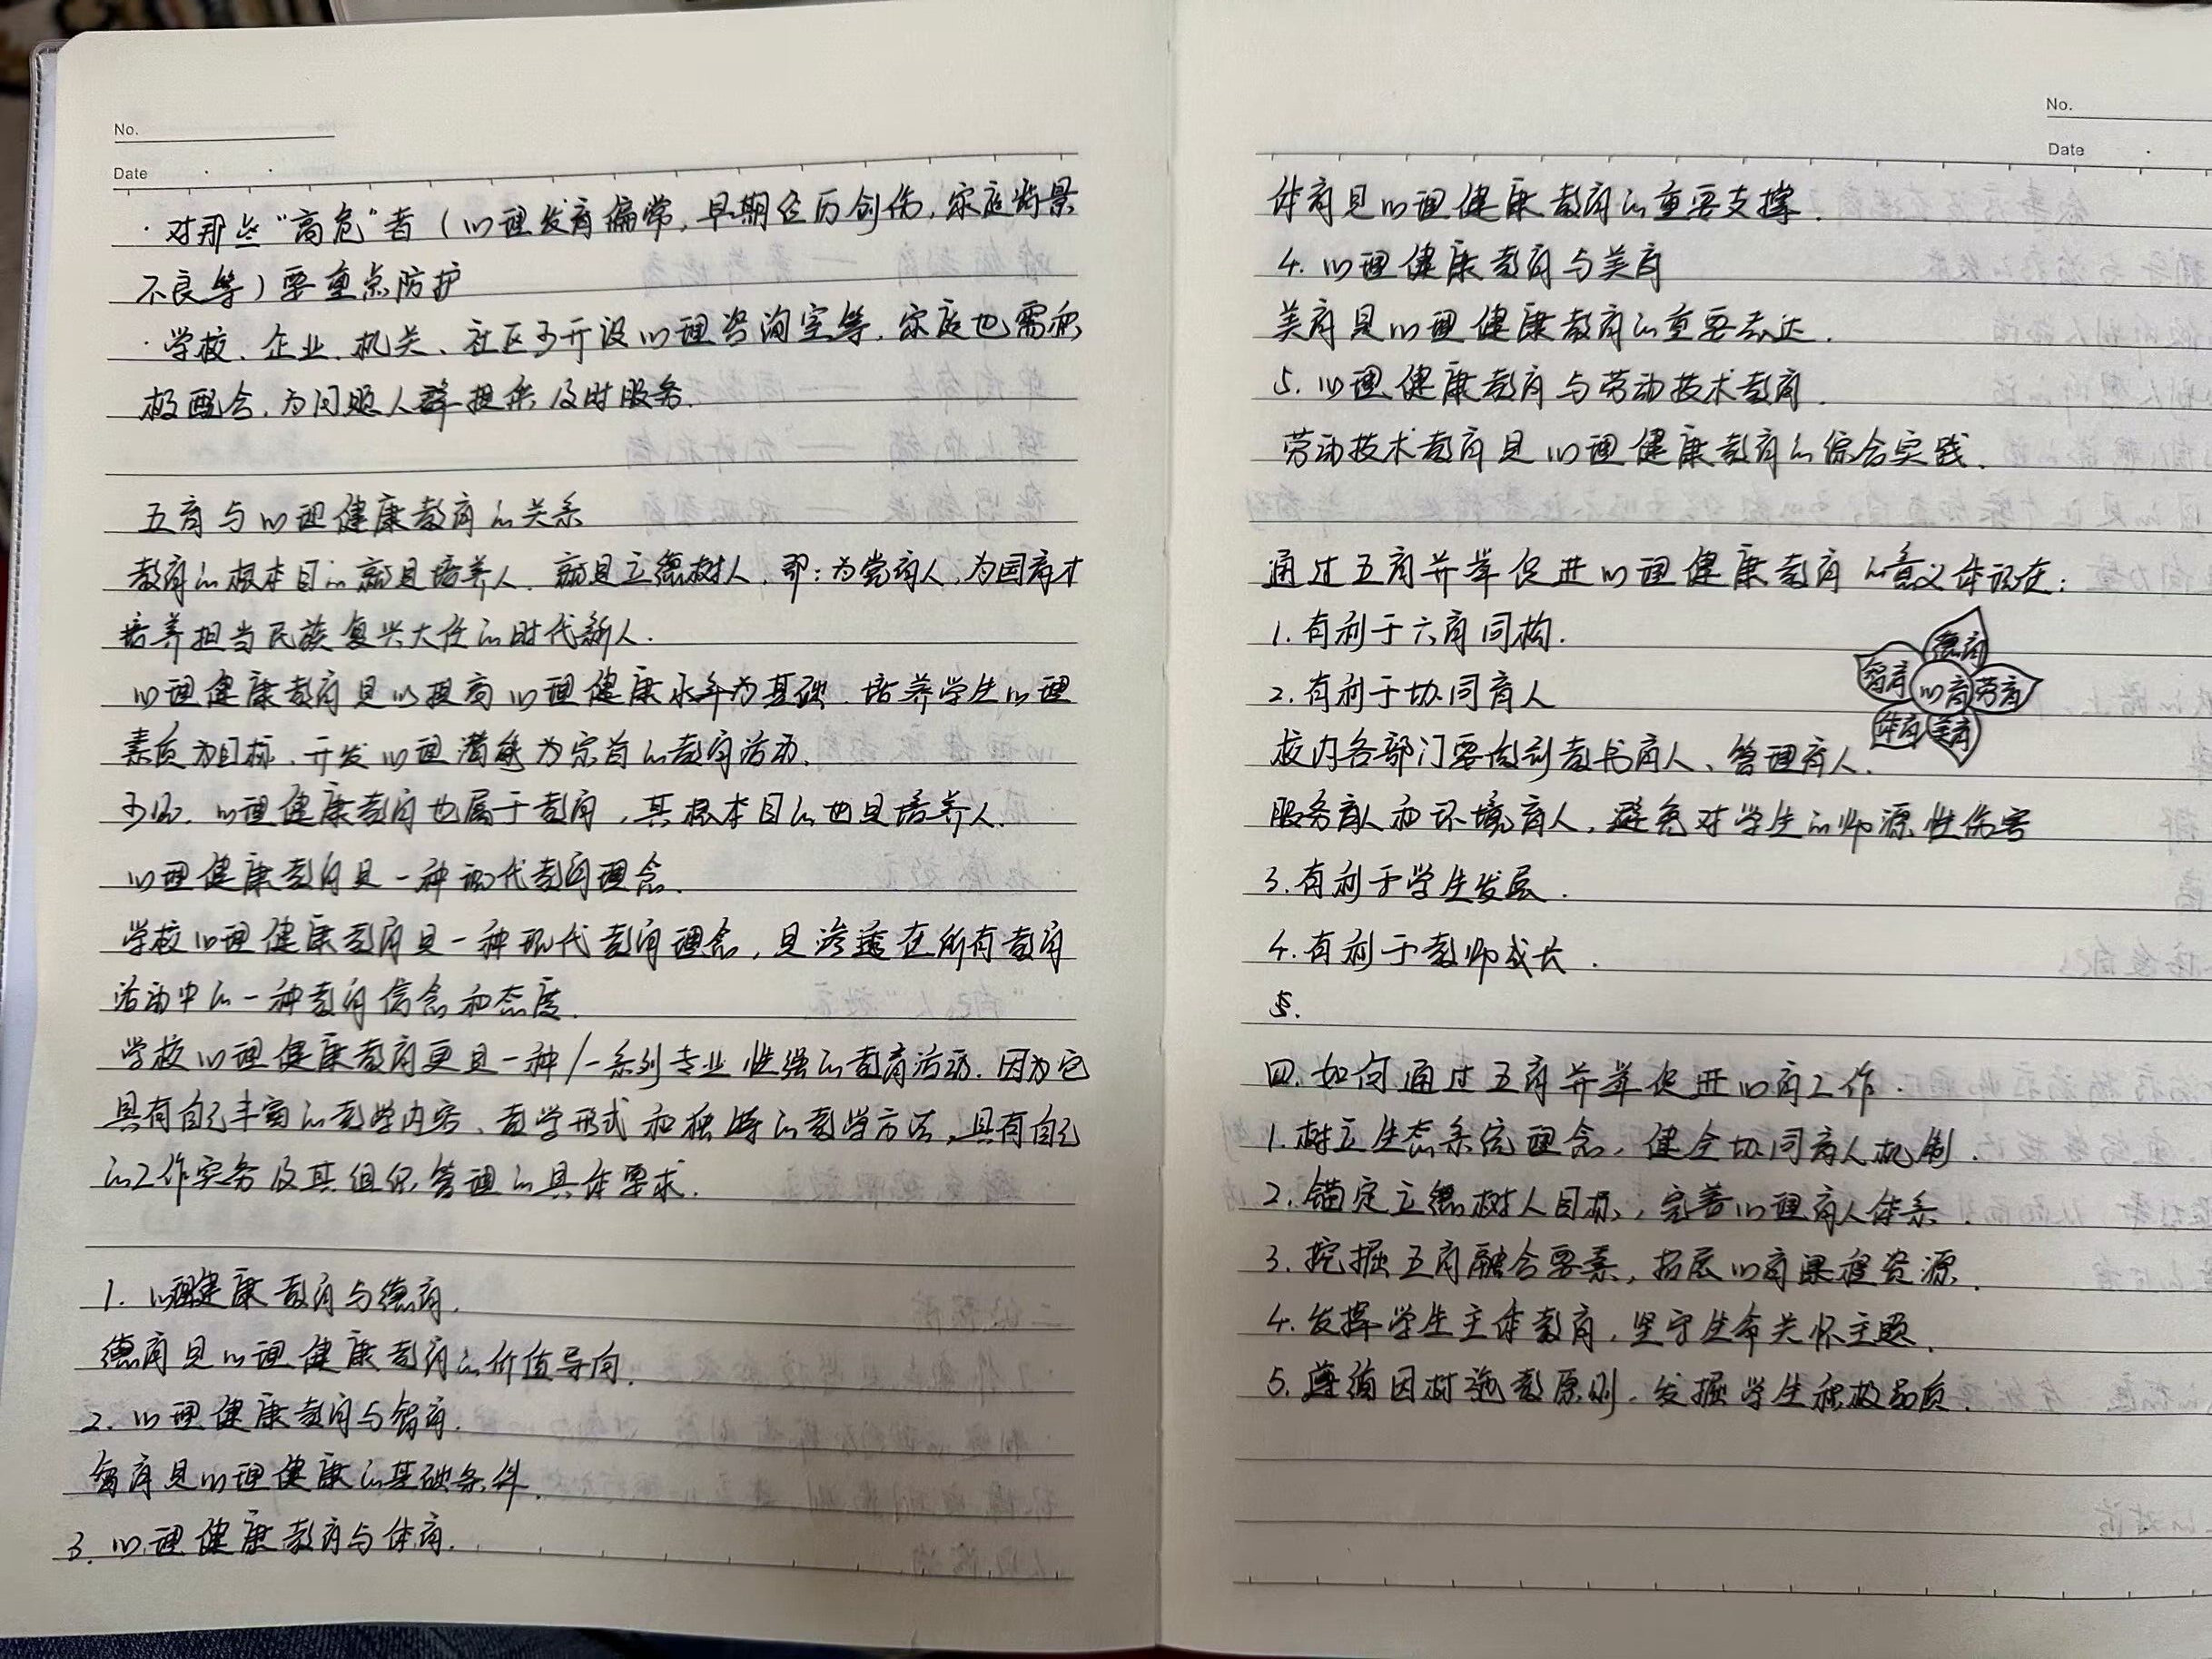 No.
Date
·对那些“高危”者（心理发育偏常，早期经历创伤，家庭背景
不良等）要重点防护
·学校、企业、机关、社区可开设心理咨询室等，家庭也需积
极配合，为问题人群提供及时服务.
五育与心理健康教育的关系
教育的根本目的就是培养人，就是立德树人，即：为党育人，为国育才
培养担当民族复兴大任的时代新人.
心理健康教育是以提高心理健康水平为基础、培养学生心理
素质为目标、开发心理潜能为宗旨的教育活动.
可见，心理健康教育也属于教育，其根本目的也是培养人.
心理健康教育是一种现代教育理念.
学校心理健康教育是一种现代教育理念，是渗透在所有教育
活动中的一种教育信念和态度.
学校心理健康教育更是一种/一系列专业性强的教育活动.因为它
具有自己丰富的教学内容、教学形式和独特的教学方法，具有自己
的工作实务及其组织管理的具体要求.
1. 心理健康教育与德育.
德育是心理健康教育的价值导向.
2. 心理健康教育与智育.
智育是心理健康的基础条件.
3. 心理健康教育与体育.
No.
Date
体育是心理健康教育的重要支撑.
4. 心理健康教育与美育
美育是心理健康教育的重要表达.
5. 心理健康教育与劳动技术教育.
劳动技术教育是心理健康教育的综合实践.
通过五育并举促进心理健康教育的意义体现在：
1. 有利于六育同构.
2. 有利于协同育人
校内各部门要做到教书育人、管理育人、
服务育人和环境育人，避免对学生的师源性伤害
3. 有利于学生发展.
4. 有利于教师成长.
5.
德育
智育
心育
劳育
体育
美育
四. 如何通过五育并举促进心育工作.
1. 树立生态系统理念，健全协同育人机制.
2. 锚定立德树人目标，完善心理育人体系.
3. 挖掘五育融合要素，拓展心育课程资源.
4. 发挥学生主体教育，坚守生命关怀主题.
5. 遵循因材施教原则，发掘学生积极品质.